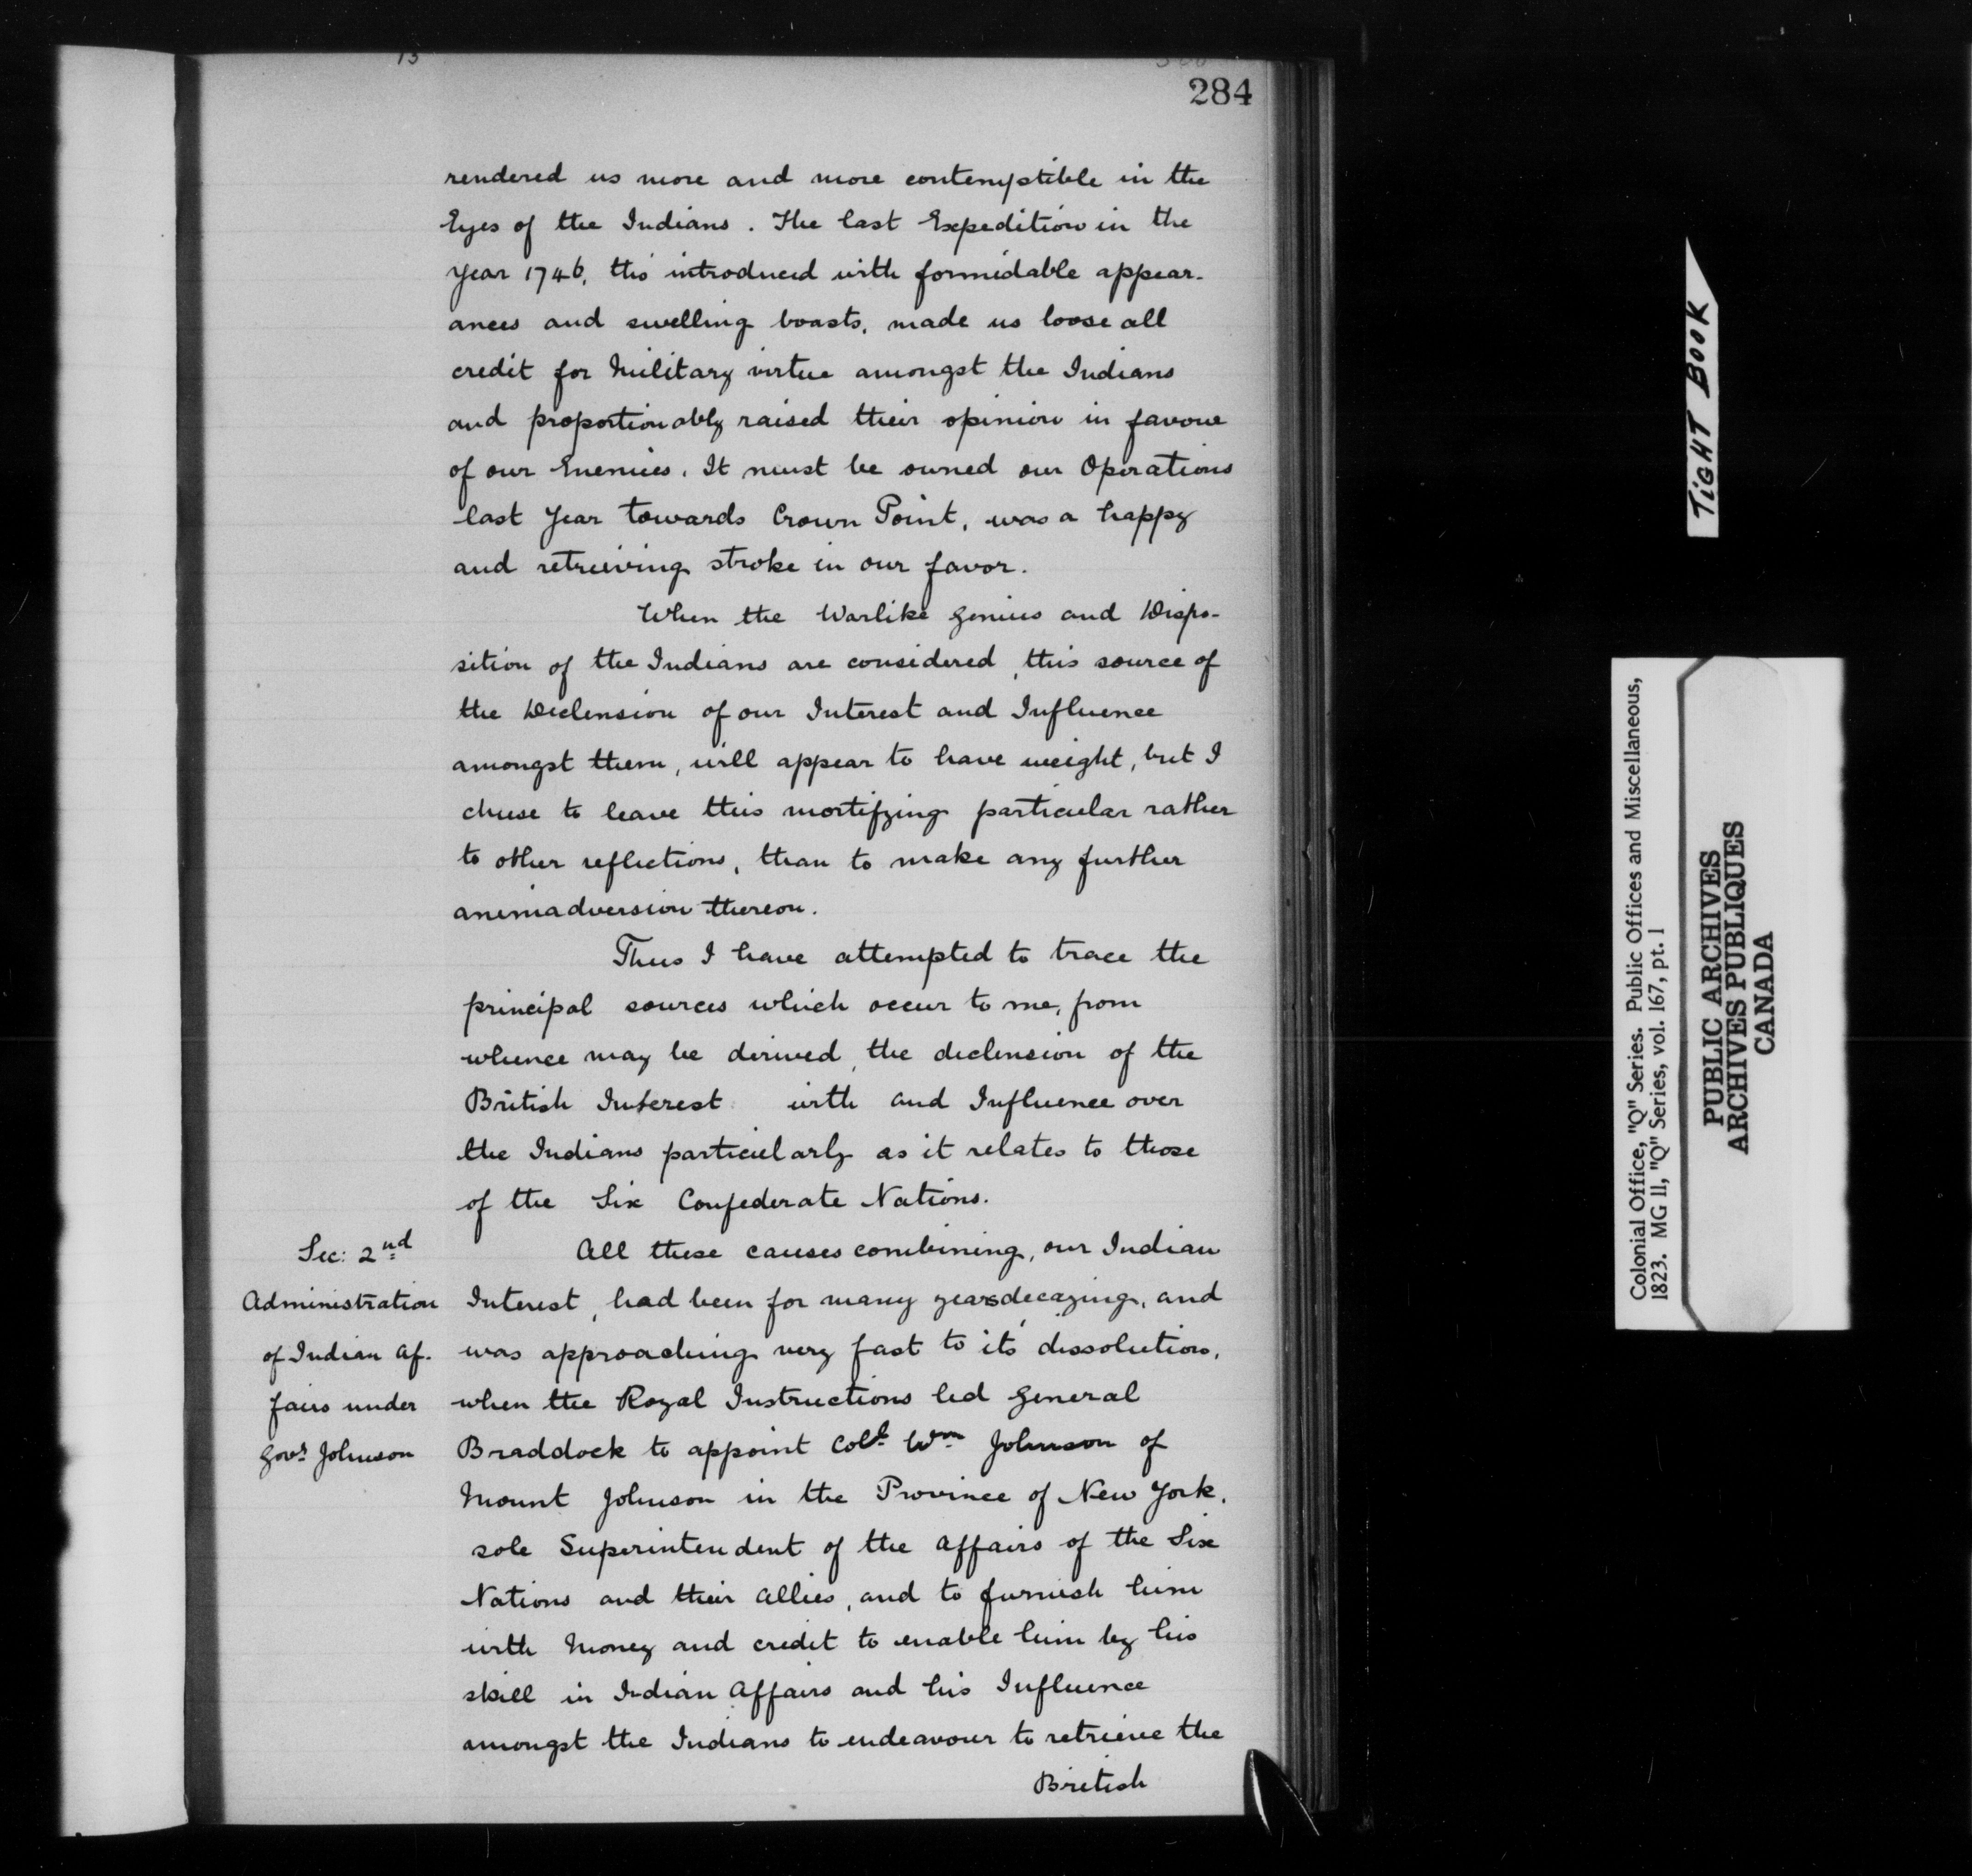 284
rendered us more and more contemptible in the
Eyes of the Indians. The last Expedition in the
year 1746, tho' introduced with formidable appear-
ances and swelling boasts, made us loose all
credit for Military virtue amongst the Indians
and proportionably raised their opinion in favour
of our Enemies. It must be owned our Operations
last Year towards Crown Point, was a happy
and retreiving stroke in our favor.
When the Warlike genius and Dispo-
sition of the Indians are considered, this source of
the Declension of our Interest and Influence
amongst them, will appear to have weight, but I
chuse to leave this mortifying particular rather
to other reflections, than to make any further
animadversion thereon.
Thus I have attempted to trace the
principal sources which occur to me, from
whence may be derived, the declension of the
British Interest with and Influence over
the Indians particularly as it relates to those
of the Six Confederate Nations.
Sec: 2nd
Administration
of Indian Af-
fairs under
Govr Johnson
All these causes combining, our Indian
Interest, had been for many years decaying, and
was approaching very fast to its dissolution,
when the Royal Instructions led General
Braddock to appoint Coll. Wm Johnson of
Mount Johnson in the Province of New York,
sole Superintendent of the Affairs of the Six
Nations and their Allies, and to furnish him
with Money and credit to enable him by his
skill in Indian Affairs and his Influence
amongst the Indians to endeavour to retrieve the
British
TIGHT BOOK
Colonial Office, "Q" Series. Public Offices and Miscellaneous,
1823. MG 11, "Q" Series, vol. 167, pt. 1
PUBLIC ARCHIVES
ARCHIVES PUBLIQUES
CANADA